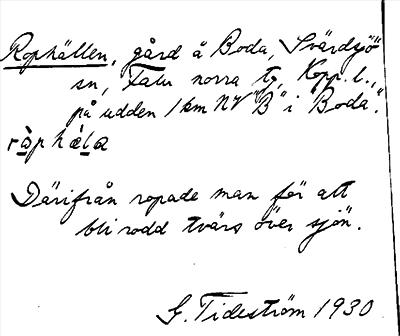 Rophällen, gård å Boda, Svärdsjö
sn, Falu norra tg, Kopp. l.,
på udden 1 km NV "B" i "Boda".
ròphæ̀la
Därifrån ropade man för att
bli rodd tvärs över sjön.
G. Tideström 1930